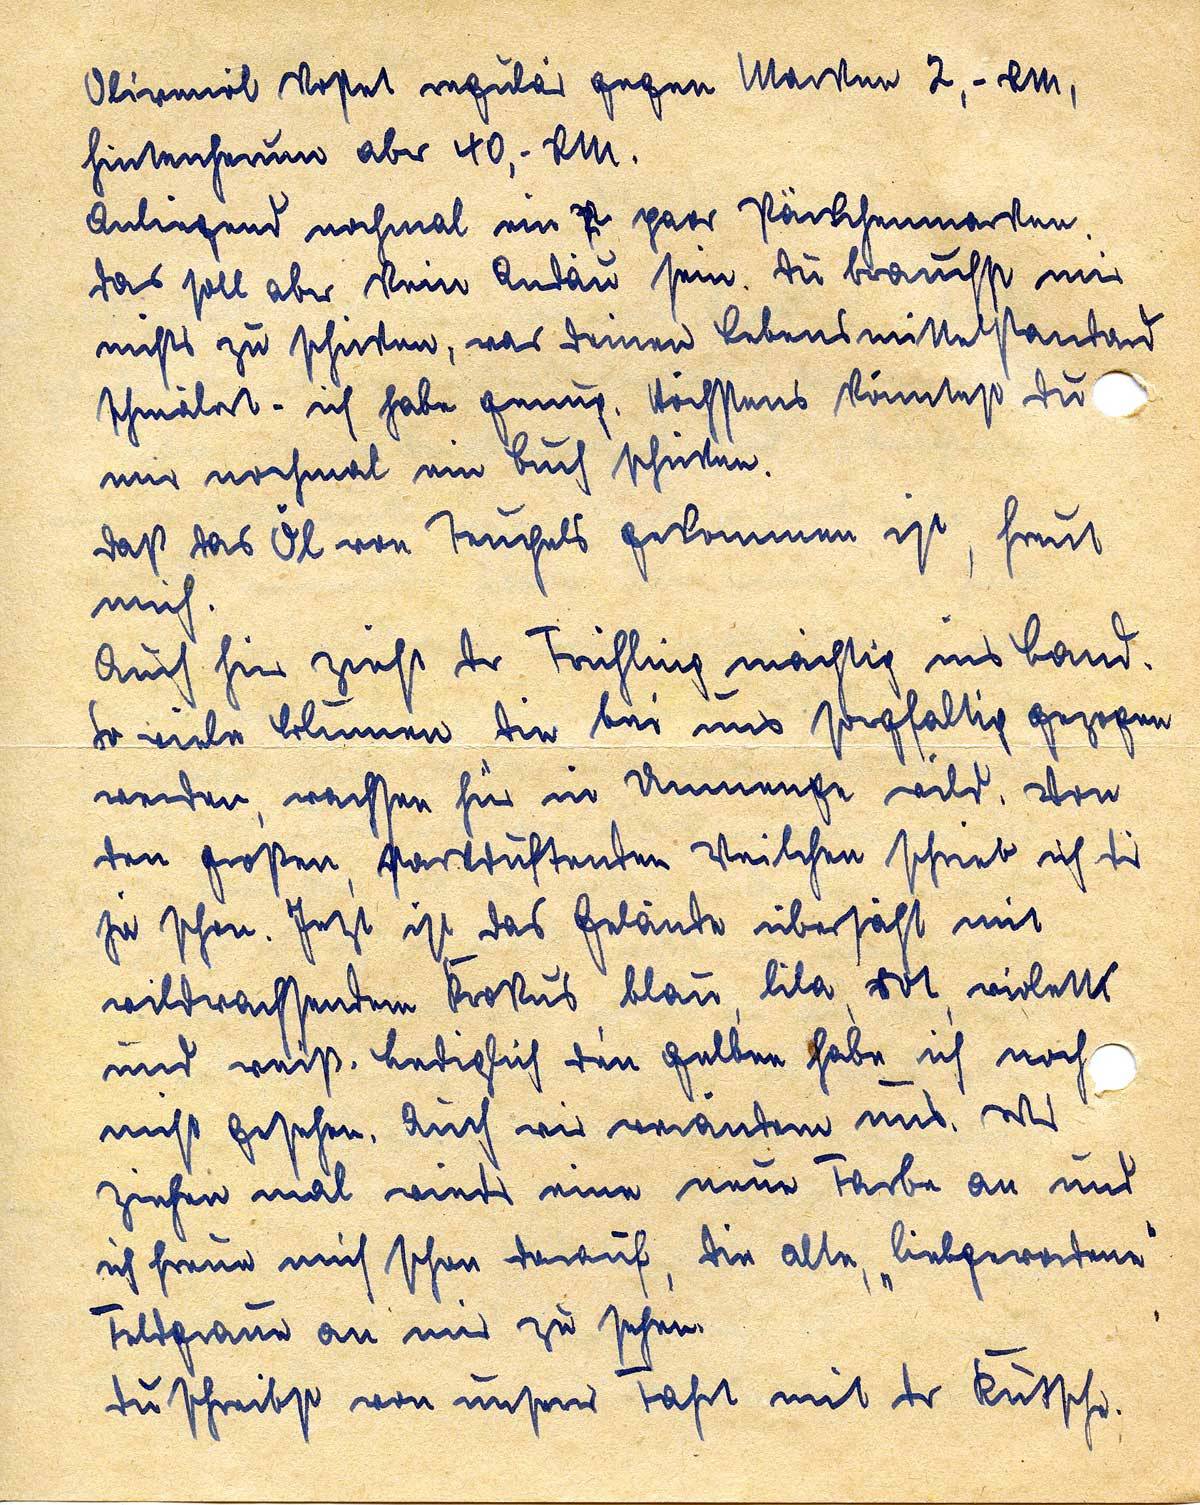 Olivenöl kostet regulär gegen Marken 2,- RM,
hintenherum aber 40,- RM.
Anliegend nochmal ein paar Päckchenmarken.
das soll aber kein Andau sein. Du brauchst mir
nichts zu schicken, was deinen Lebensmittelstandard
schmälert - ich habe genug. Höchstens könntest du
mir nochmal ein Buch schicken.
daß das Öl von Teuchels gekommen ist, freut
mich.
Auch hier zieht der Frühling mächtig ins Land.
So viele Blumen die bei uns sorgfältig gezogen
werden, wachsen hier in Unmenge wild. Von
den großen, starkduftenden Veilchen schrieb ich dir
ja schon. Jetzt ist das Gelände übersäht mit
wildwachsendem Krokus blau, lila, rot, violett
und weiß. Lediglich den gelben habe ich noch
nicht gesehen. Auch wir verändern uns. Wir
ziehen mal wieder eine neue Farbe an und
ich freue mich schon darauf, die alte, „liebgewordene"
Feldgraue an mir zu sehen.
du schreibst von unserer Fahrt mit der Kutsche.